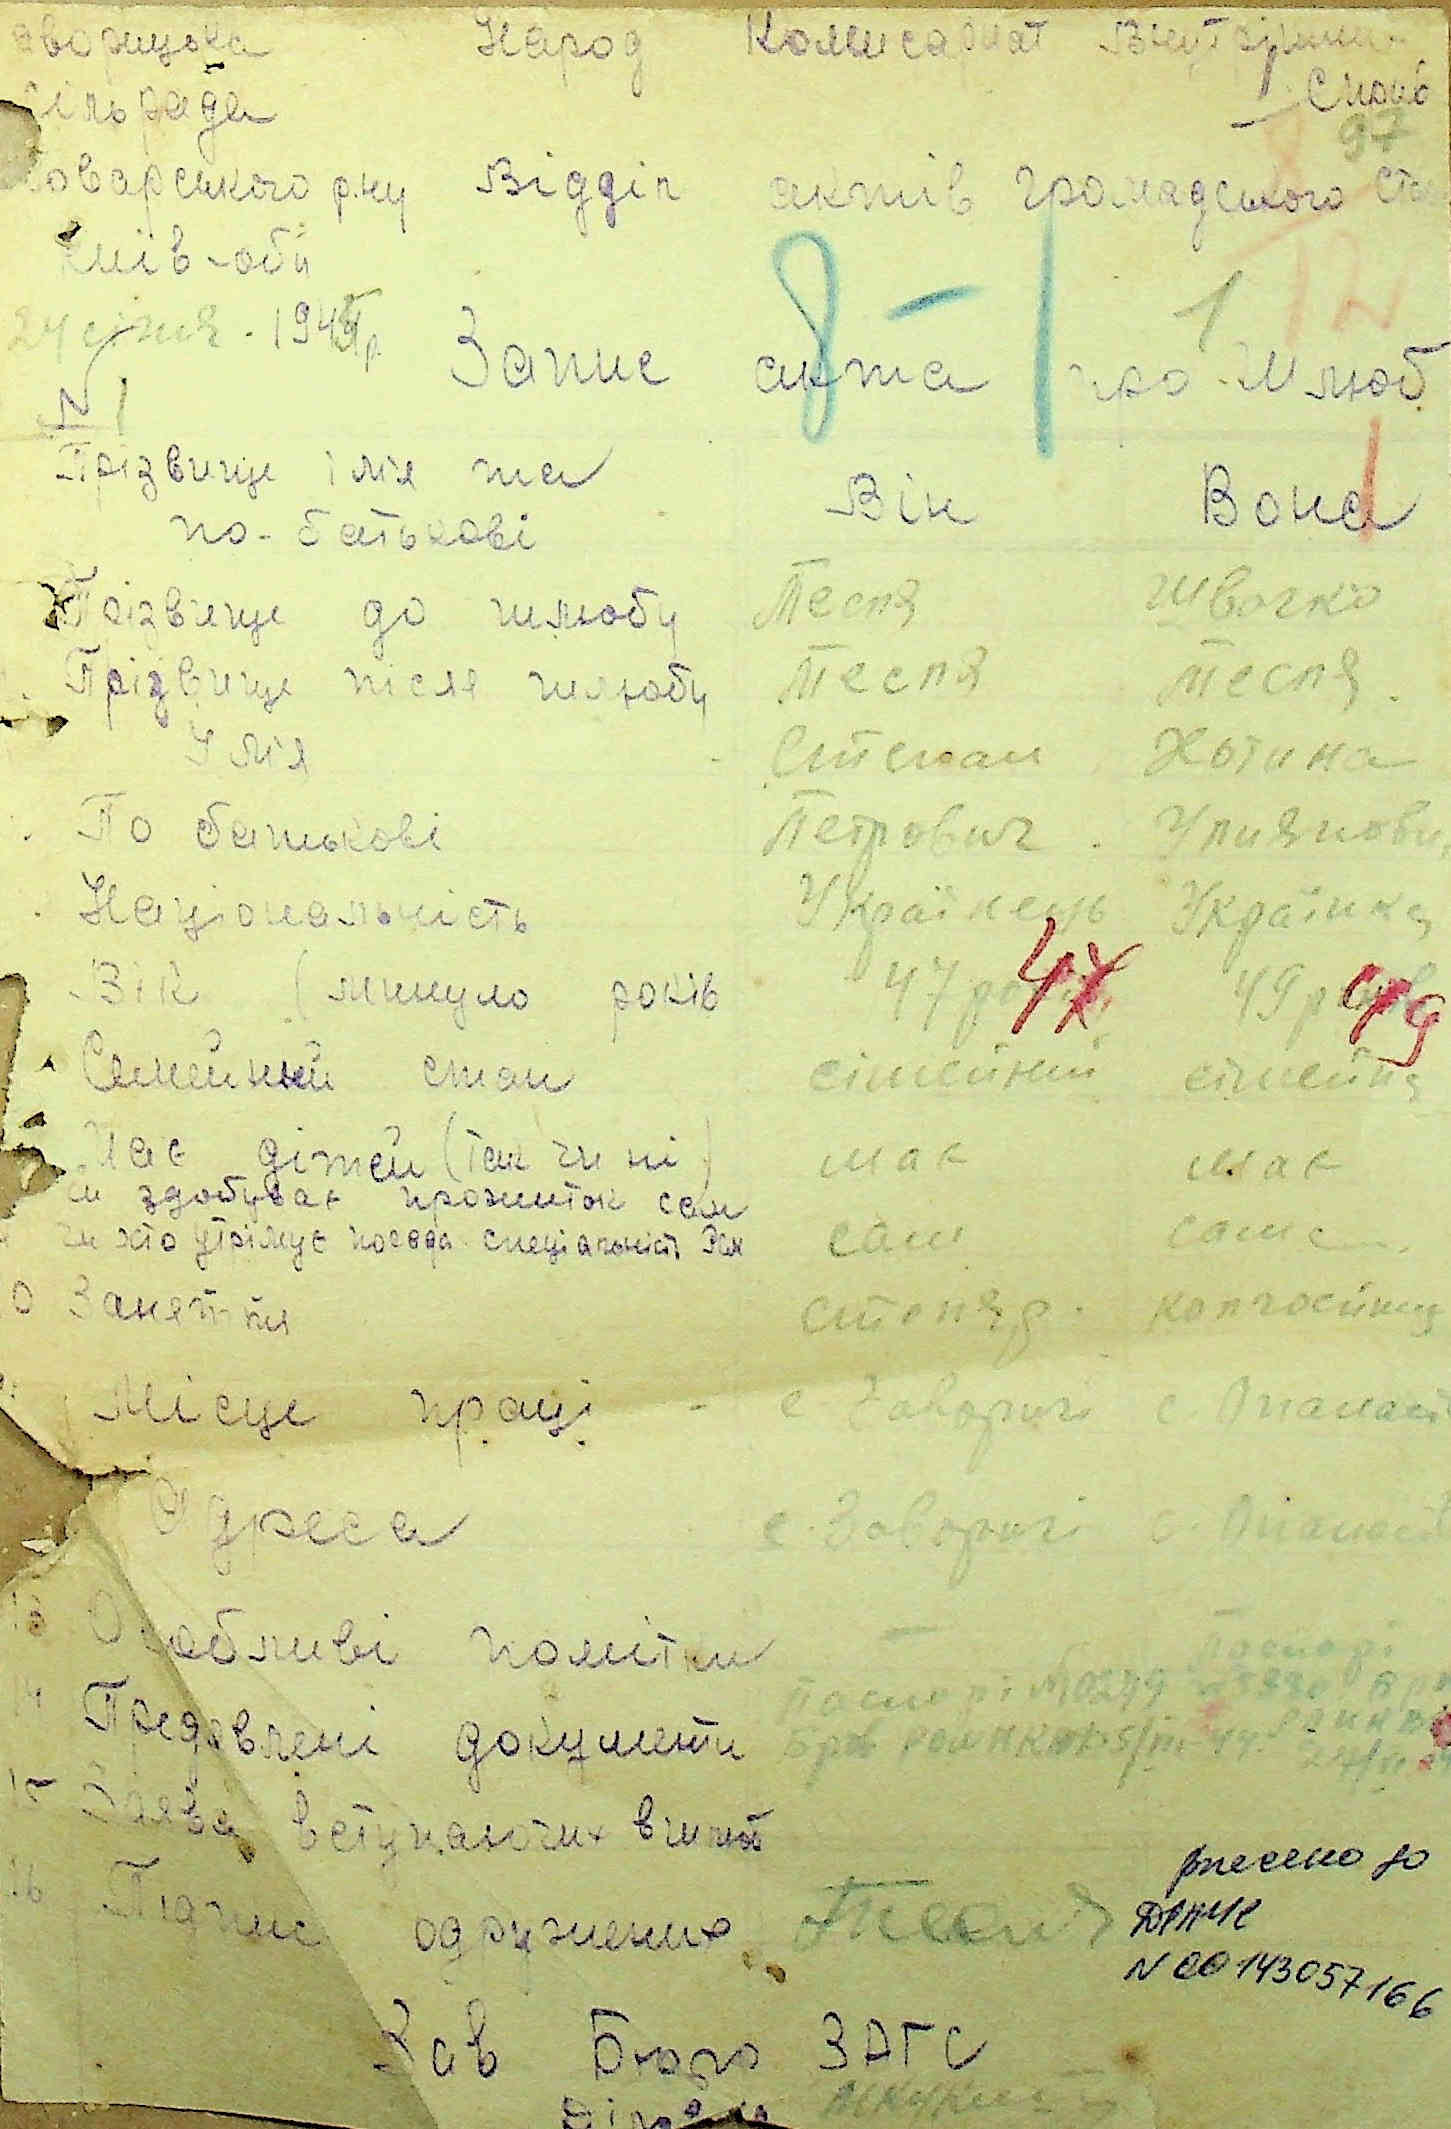 Народ Комисариат Внутрішних
Сільрада Справ
97
Броварського р-ну Відділ актів громадського стану
Київ-обл
24 січня 1945 р. Запис акта про Шлюб
8 - 1 1
N 1
Прізвище імя та Він Вона
по-батькові
Прізвище до шлюбу Тесля Швачко
Прізвище після шлюбу Тесля Тесля
Імя Степан Хотина
По батькові Петрович Улияновн
Національність Українець Українка
Вік (минуло років 47 років 47 49 років 49
Семейний стан сімейний сімейна
Має дітей (так чи ні) має має
чи здобуває прожиток сам
чи хто утрімує посада спеціальність сам сама
10 Заняття столяр колгоспниця
Місце праці с Заворичі с.
Адреса с. Заворичі с.
13 Особливі помітки
14 Предявлені документи паспорт паспорт
15 Заява вступаючих в шлюб
16 Підпис одружених Тесля
внесено до
ДРАЦС
N 00143057166
Зав Бюро ЗАГС